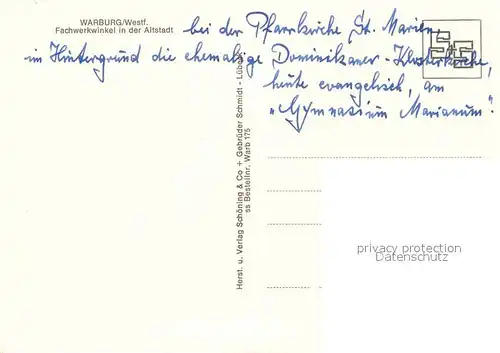 WARBURG/Westf.
Fachwerkwinkel in der Altstadt
bei der Pfarrkirche St. Marien,
im Hintergrund die ehemalige Dominikaner-Klosterkirche,
heute evangelisch, am
„Gymnasium Marianum".
Herst. u. Verlag Schöning & Co + Gebrüder Schmidt - Lübeck
ss Bestellnr. Warb 175
privacy protection
Datenschutz